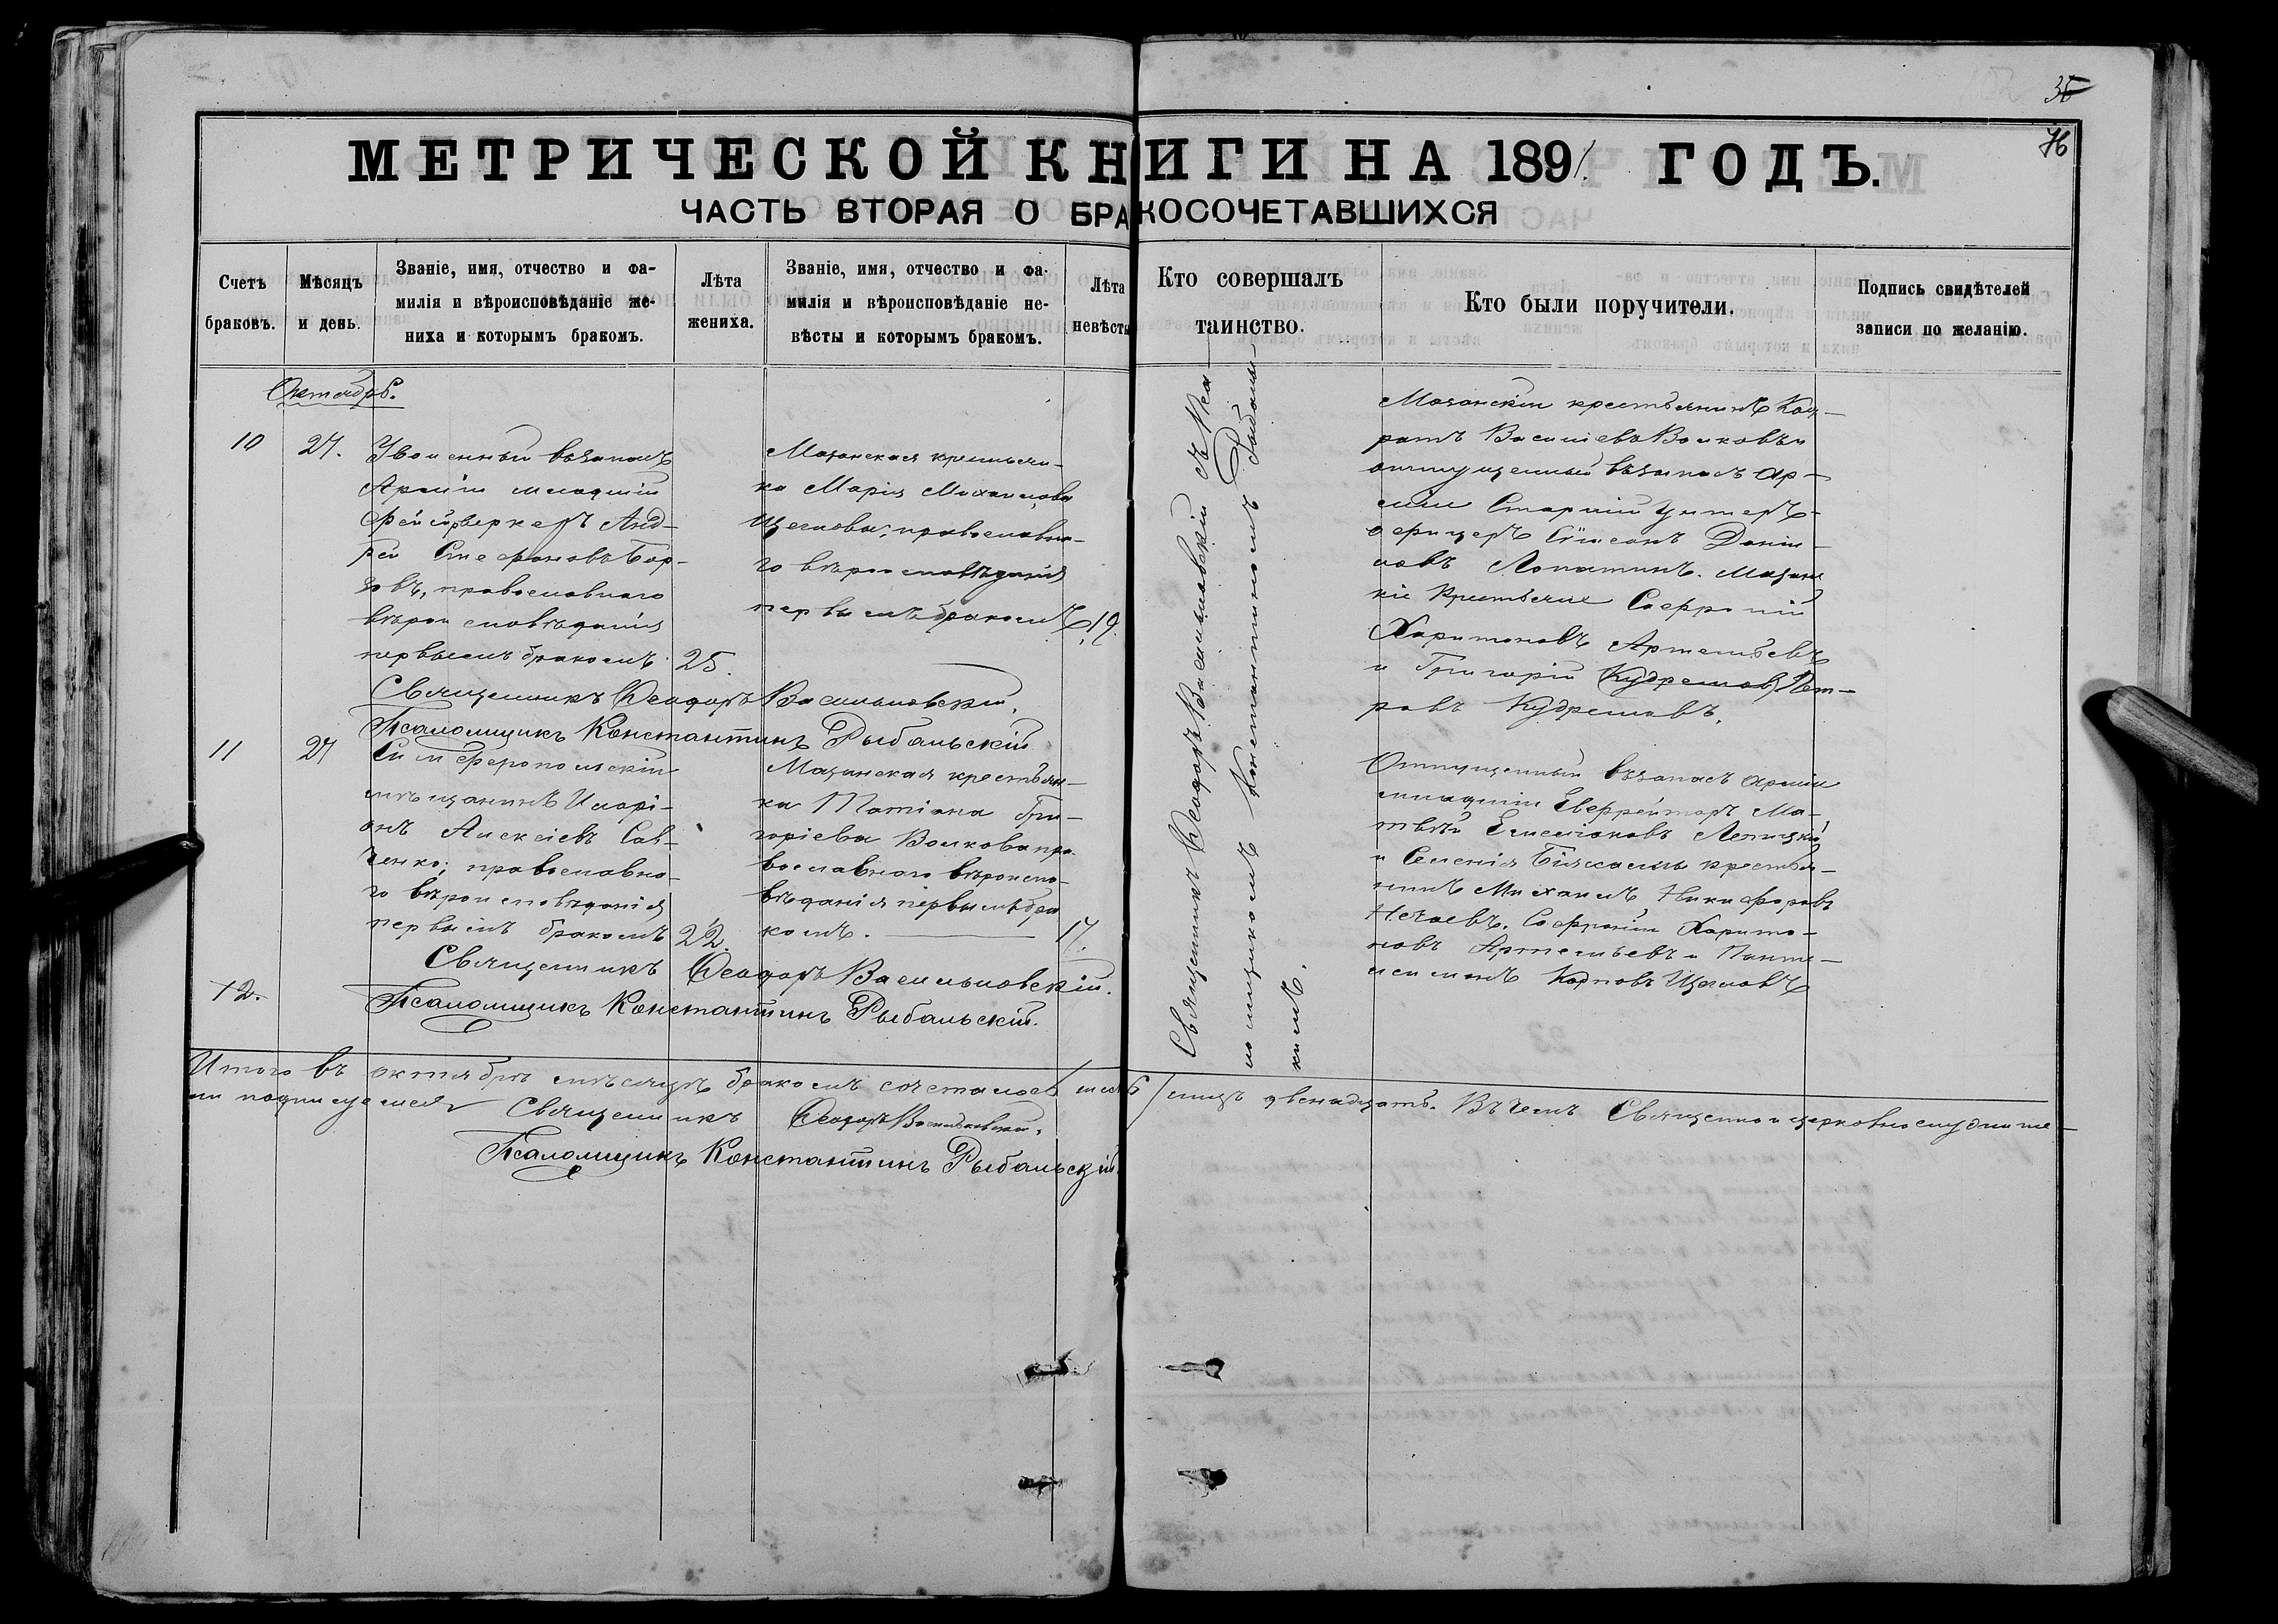 35
76
МЕТРИЧЕСКОЙ КНИГИ НА 1891. ГОДЪ.
ЧАСТЬ ВТОРАЯ О БРАКОСОЧЕТАВШИХСЯ
Счетъ
браковъ.
Мѣсяцъ
и день.
Званіе, имя, отчество и фа-
милія и вѣроисповѣданіе же-
ниха и которымъ бракомъ.
Лѣта
жениха.
Званіе, имя, отчество и фа-
милія и вѣроисповѣданіе не-
вѣсты и которымъ бракомъ.
Лѣта
невѣсты
Кто совершалъ
таинство.
Кто были поручители.
Подпись свидѣтелей
записи по желанію.
Октябрь.
10
27.
Уволенный въ запасъ
Арміи младшій
фейерверкеръ Анд-
рей Стефановъ
православнаго
вѣроисповѣданія
первымъ бракомъ
25.
Мазанская крестьян-
ка Марія Михаилова
Щеглова, православна-
го вѣроисповѣданія
первымъ бракомъ
19.
Священникъ Ѳеодоръ Васильковскій съ Пса-
ломщикомъ Константиномъ Рыбаль-
кимъ.
Мазанскій крестьянинъ
Василіевъ Волковъ и
отпущенный въ запасъ ар-
міи Старшій Унтеръ-
офицеръ Даніи-
ловъ Лопатинъ. Мазанс
кіе Крестьяне Софроній
Харитоновъ Артемьевъ
и Григорій Кудрешовъ Пет-
ровъ Кудрешовъ.
Священникъ Ѳеодоръ Васильковскій.
Псаломщикъ Константинъ Рыбальскій
11
27
Симферопольскій
мѣщанинъ Иларі-
онъ Алексіевъ Сав-
ченко; православна-
го вѣроисповѣданія
первымъ бракомъ
22.
Мазанская крестьян-
ка Татіана Гри-
горіева Волкова пра-
вославнаго вѣроиспо-
вѣданія первымъ бра
комъ.
17.
Отпущенный въ запасъ арміи
младшій Ефрейторъ Ма-
твѣй Емеліановъ
и Селенія крестья-
нинъ Михаилъ Никифоровъ
Нечаевъ. Софроній Харито-
новъ Артемьевъ и Панте-
леимонъ Карповъ Щегловъ
Священникъ Ѳеодоръ Васильковскій.
12.
Псаломщикъ Константинъ Рыбальскій.
Итого въ октябрѣ мѣсяцѣ бракомъ сочеталось 6 / лицъ двенадцать. Въ чемъ Священно и церковнослужите-
ли подписуемся Священникъ Ѳеодоръ Васильковскій.
Псаломщикъ Константинъ Рыбальскій.